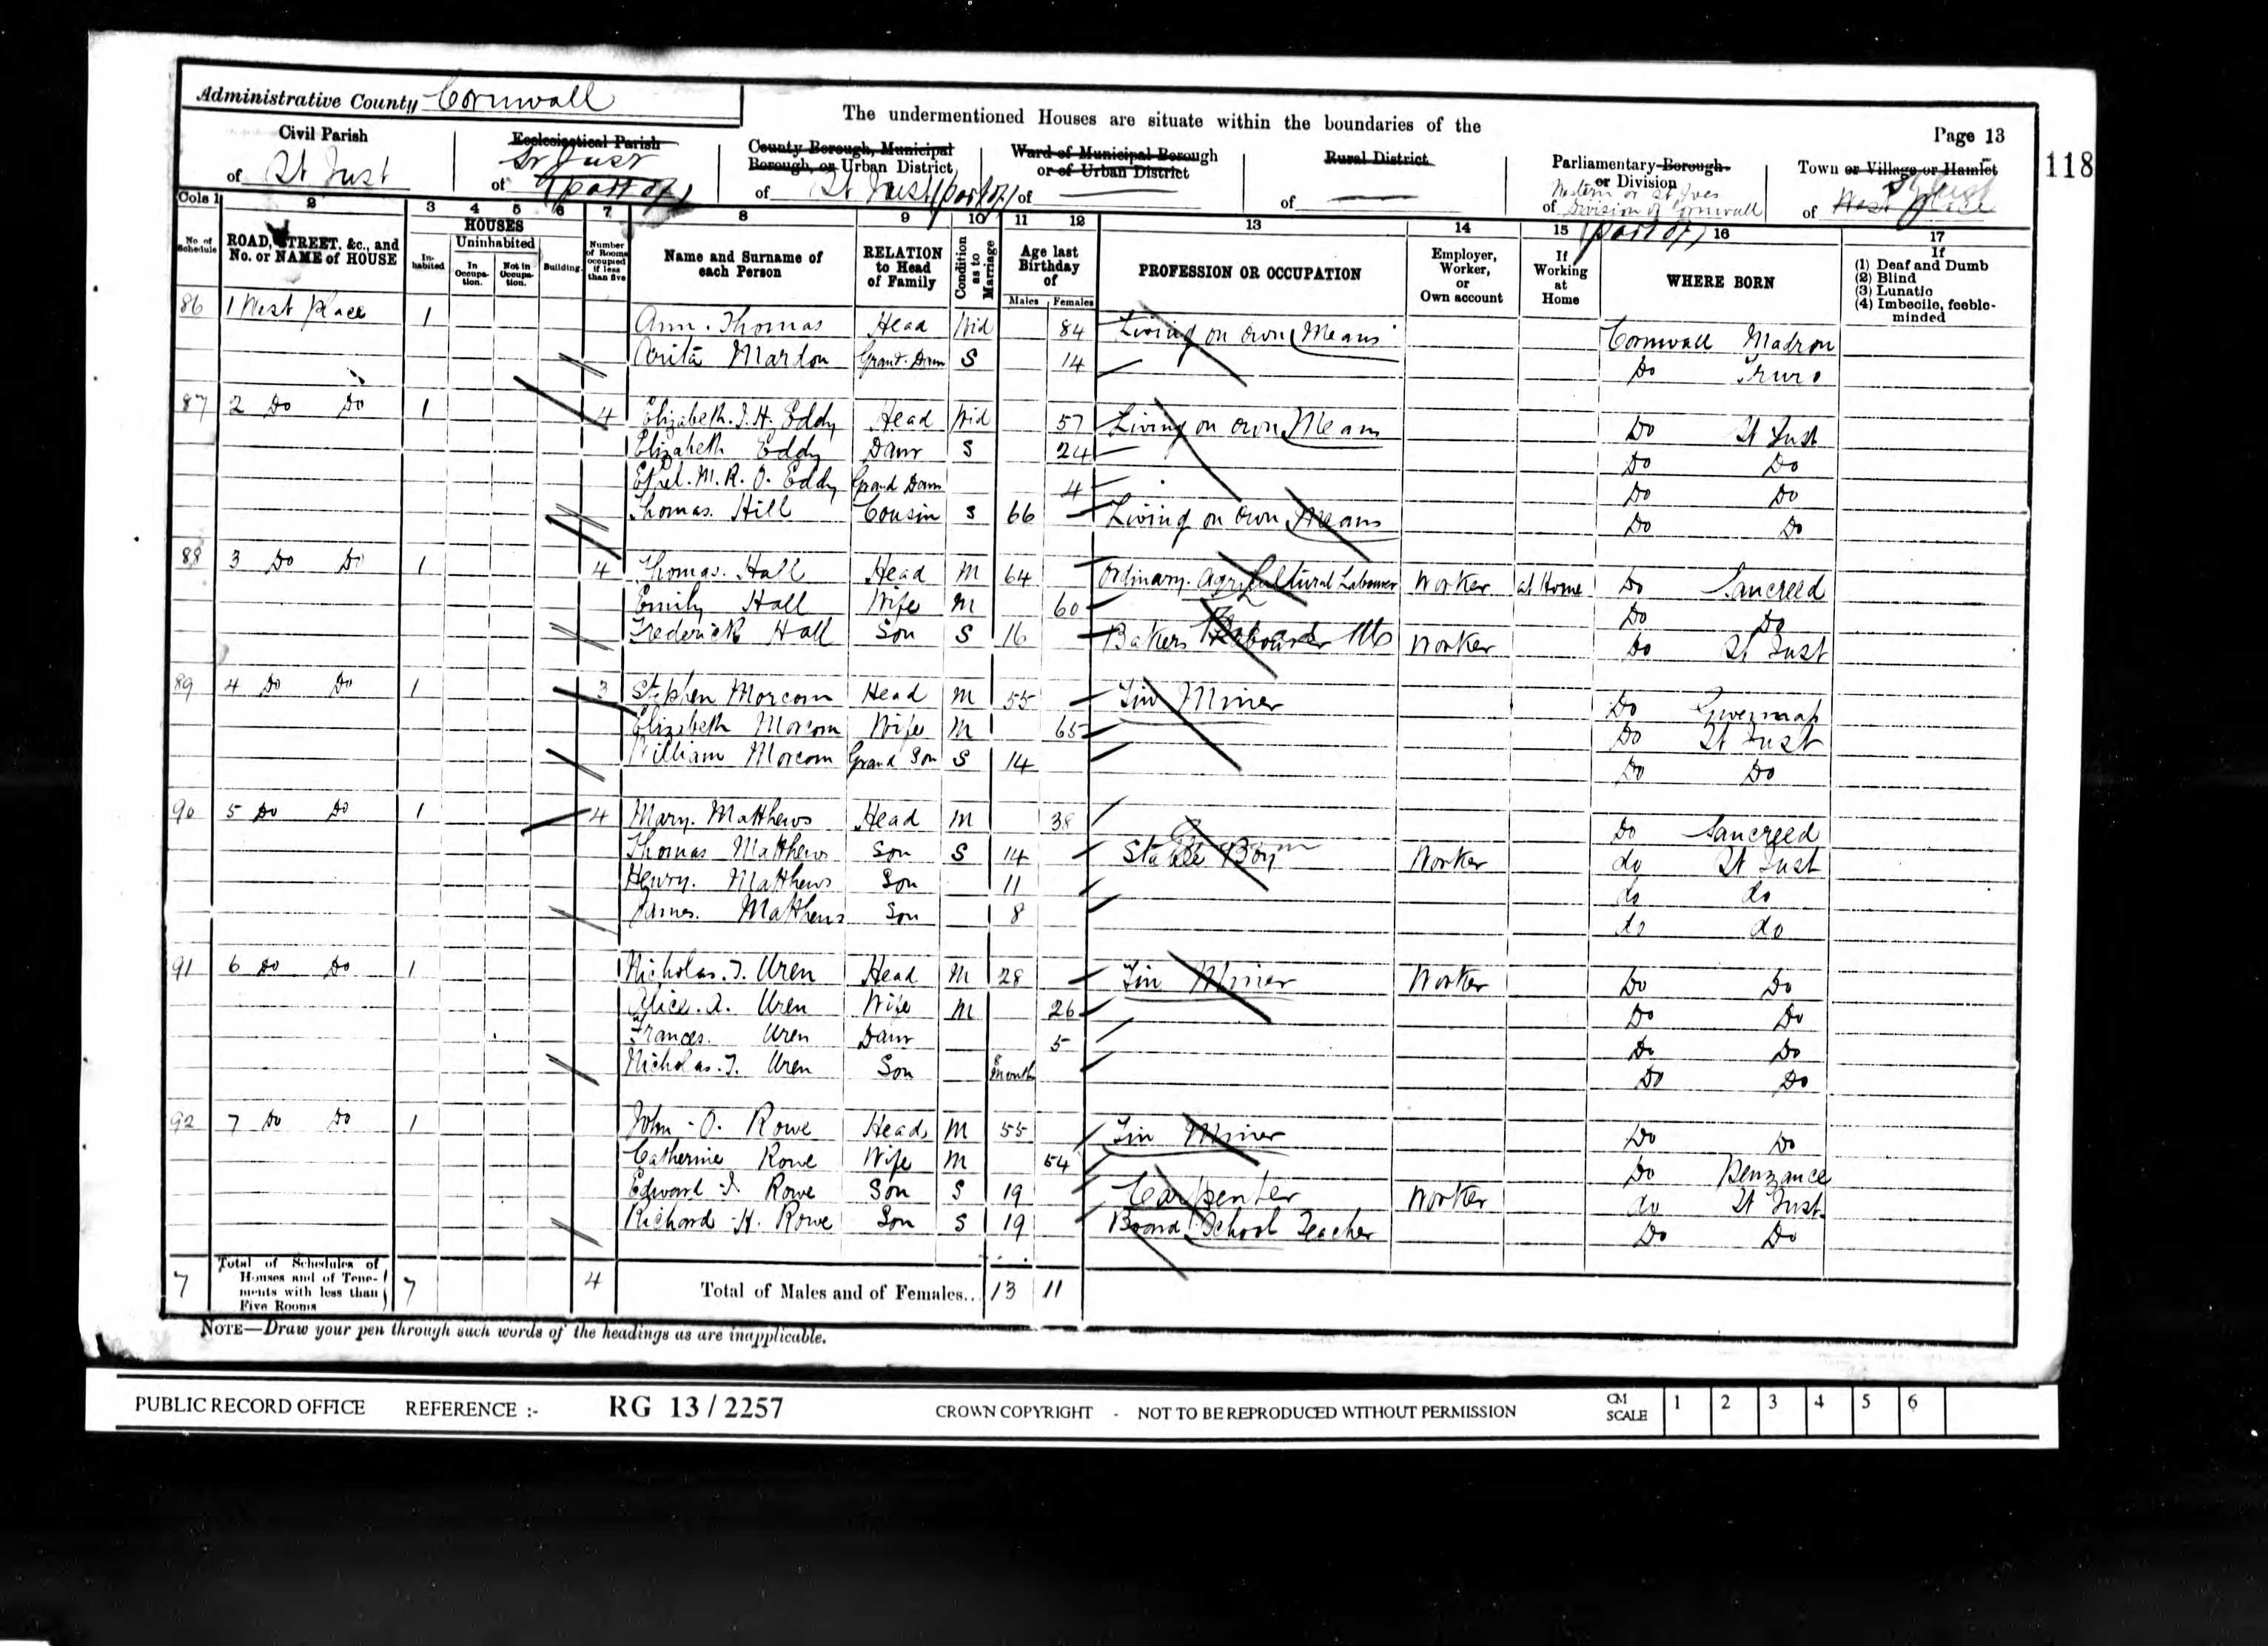 Administrative County Cornwall
The undermentioned Houses are situate within the boundaries of the
Page 13
118
Civil Parish of St Just
Ecclesiastical Parish of St Just (part of)
County Borough, Municipal Borough, or Urban District of St Just (part of)
Ward of Municipal Borough or of Urban District of
Rural District of
Parliamentary Borough or Division of Western or St Ives Division of Cornwall (part of)
Town or Village or Hamlet of St Just West Place
Cols 1 2 3 4 5 6 7 8 9 10 11 12 13 14 15 16 17
No. of Schedule
ROAD, STREET, &c., and No. or NAME of HOUSE
HOUSES
Inhabited
Uninhabited
In Occupation.
Not in Occupation.
Building.
Number of Rooms occupied if less than five
Name and Surname of each Person
RELATION to Head of Family
Condition as to Marriage
Age last Birthday of
Males Females
PROFESSION OR OCCUPATION
Employer, Worker, or Own account
If Working at Home
WHERE BORN
If (1) Deaf and Dumb (2) Blind (3) Lunatic (4) Imbecile, feeble-minded
86 1 West Place 1 Ann. Thomas Head Wid 84 Living on own Means Cornwall Madron
Mardon Grand-Daur S 14 Do Truro
87 2 Do Do 1 4 Elizabeth. J. H. Eddy Head Wid 57 Living on own Means Do St Just
Elizabeth Eddy Daur S 24 Do Do
Ethel. M. R. O. Eddy Grand Daur 4 Do Do
Thomas. Hill Cousin S 66 Living on own Means Do Do
88 3 Do Do 1 4 Thomas. Hall Head M 64 Ordinary. Agricultural Labourer Worker at Home Do Sancreed
Emily Hall Wife M 60 Do Do
Frederick Hall Son S 16 Bakers Worker Do St Just
89 4 Do Do 1 3 Stephen Morcom Head M 55 Tin Miner Do Gwennap
Elizabeth Morcom Wife M 65 Do St Just
William Morcom Grand Son S 14 Do Do
90 5 Do Do 1 4 Mary. Matthews Head M 38 Do Sancreed
Thomas Matthews Son S 14 Stable Boy Worker do St Just
Henry. Matthews Son 11 do do
James. Matthews Son 8 do do
91 6 Do Do 1 Nicholas. T. Uren Head M 28 Tin Miner Worker Do Do
Alice. A. Uren Wife M 26 Do Do
Frances. Uren Daur 5 Do Do
Nicholas. T. Uren Son month Do Do
92 7 Do Do 1 John. O. Rowe Head M 55 Tin Miner Do Do
Catherine Rowe Wife M 54 Do Penzance
Edward J. Rowe Son S 19 Carpenter Worker do St Just
Richard H. Rowe Son S 19 Board School Teacher Do Do
7 Total of Schedules of Houses and of Tenements with less than Five Rooms 7 4 Total of Males and of Females.. 13 11
NOTE—Draw your pen through such words of the headings as are inapplicable.
PUBLIC RECORD OFFICE REFERENCE :- RG 13 / 2257 CROWN COPYRIGHT - NOT TO BE REPRODUCED WITHOUT PERMISSION CM SCALE 1 2 3 4 5 6